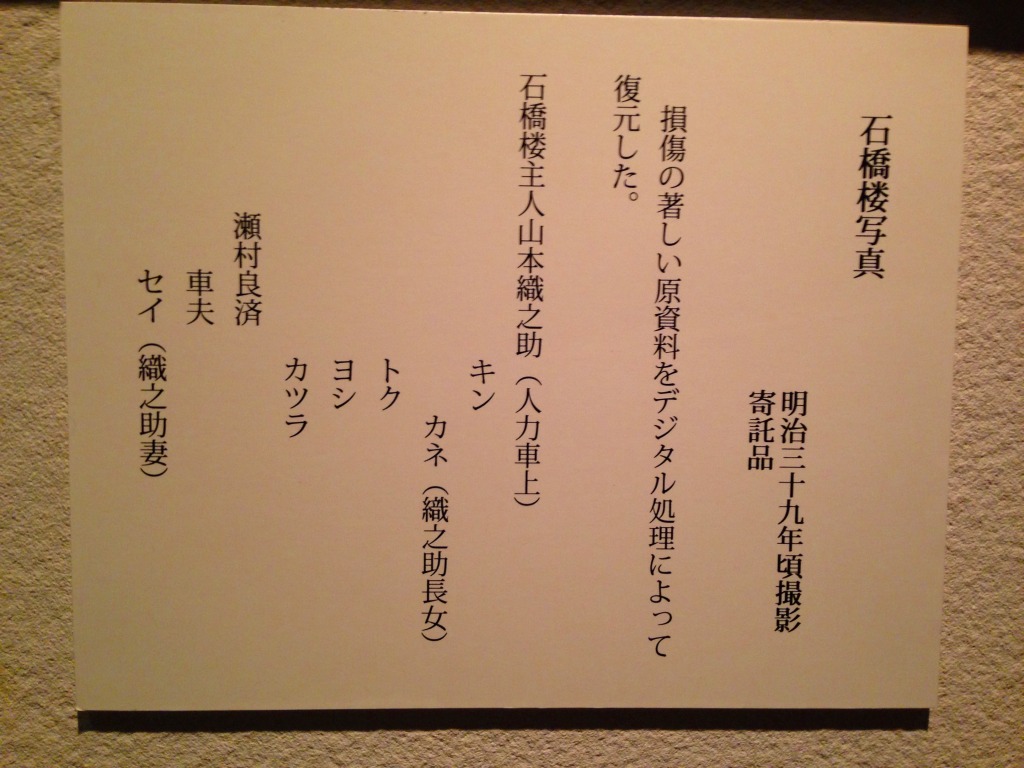 石橋楼写真
明治三十九年頃撮影
寄託品
損傷の著しい原資料をデジタル処理によって
復元した。
石橋楼主人山本織之助（人力車上）
キン
カネ（織之助長女）
トク
ヨシ
カツラ
瀬村良済
車夫
セイ（織之助妻）